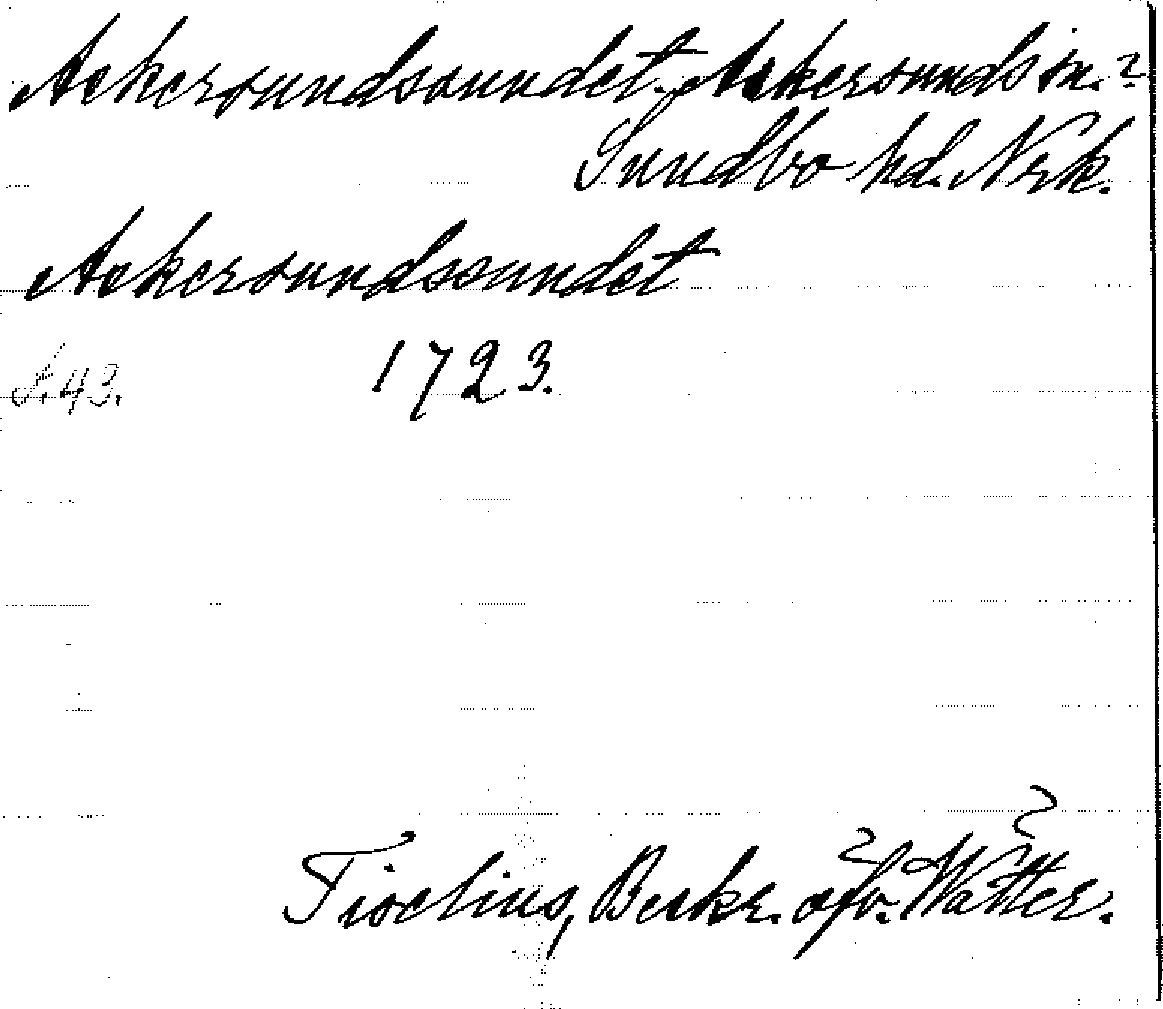 Askersundssundet. Askersunds sn.?
Sundbo hd. Nrk.
Askersundssundet
S. 43. 1723.
Tiselius, Beskr. öfv. Wätter.